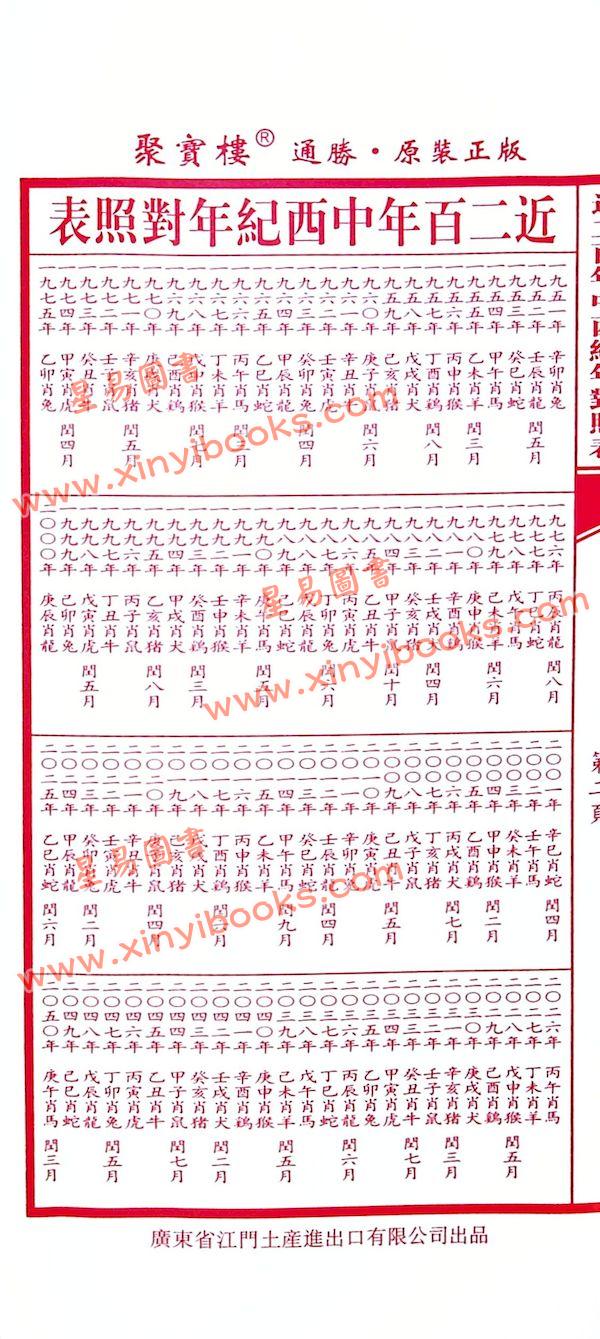 聚寶樓® 通勝·原裝正版
近二百年中西紀年對照表
一九五一年 辛卯肖兔
一九五二年 壬辰肖龍 閏五月
一九五三年 癸巳肖蛇
一九五四年 甲午肖馬
一九五五年 乙未肖羊 閏三月
一九五六年 丙申肖猴
一九五七年 丁酉肖鷄 閏八月
一九五八年 戊戌肖犬
一九五九年 己亥肖猪
一九六〇年 庚子肖鼠 閏六月
一九六一年 辛丑肖牛
一九六二年
一九六三年 閏四月
一九六四年 甲辰肖龍
一九六五年 乙巳肖蛇
一九六六年 丙午肖馬 閏三月
一九六七年 丁未肖羊
一九六八年 戊申肖猴 閏七月
一九六九年 己酉肖鷄
一九七〇年 庚戌肖犬
一九七一年 辛亥肖猪 閏五月
一九七二年 壬子肖鼠
一九七三年 癸丑肖牛
一九七四年 甲寅肖虎 閏四月
一九七五年 乙卯肖兔
一九七六年 丙辰肖龍 閏八月
一九七七年 丁巳肖蛇
一九七八年 戊午肖馬
一九七九年 己未肖羊 閏六月
一九八〇年 庚申肖猴
一九八一年 辛酉肖鷄
一九八二年 壬戌肖犬 閏四月
一九八三年 癸亥肖猪
一九八四年 甲子肖鼠 閏十月
一九八五年 乙丑肖牛
一九八六年 丙寅肖虎
一九八七年 丁卯肖兔 閏六月
一九八八年 戊辰肖龍
一九八九年 己巳肖蛇
一九九〇年 庚午肖馬 閏五月
一九九一年 辛未肖羊
一九九二年 壬申肖猴
一九九三年 癸酉肖鷄 閏三月
一九九四年 甲戌肖犬
一九九五年 乙亥肖猪 閏八月
一九九六年 丙子肖鼠
一九九七年 丁丑肖牛
一九九八年 戊寅肖虎 閏五月
一九九九年 己卯肖兔
二〇〇〇年 庚辰肖龍
二〇〇一年 辛巳肖蛇 閏四月
二〇〇二年 壬午肖馬
二〇〇三年 癸未肖羊
二〇〇四年 甲申肖猴 閏二月
二〇〇五年 乙酉肖鷄
二〇〇六年 丙戌肖犬 閏七月
二〇〇七年 丁亥肖猪
二〇〇八年 戊子肖鼠
二〇〇九年 己丑肖牛 閏五月
二〇一〇年 庚寅肖虎
二〇一一年 辛卯肖兔
二〇一二年 壬辰肖龍 閏四月
二〇一三年 癸巳肖蛇
二〇一四年 甲午肖馬 閏九月
二〇一五年 乙未肖羊
二〇一六年 丙申肖猴
二〇一七年 丁酉肖鷄 閏六月
二〇一八年 戊戌肖犬
二〇一九年 己亥肖猪
二〇二〇年 庚子肖鼠 閏四月
二〇二一年 辛丑肖牛
二〇二二年 壬寅肖虎
二〇二三年 癸卯肖兔 閏二月
二〇二四年 甲辰肖龍
二〇二五年 乙巳肖蛇 閏六月
二〇二六年 丙午肖馬
二〇二七年 丁未肖羊
二〇二八年 戊申肖猴 閏五月
二〇二九年 己酉肖鷄
二〇三〇年 庚戌肖犬
二〇三一年 辛亥肖猪 閏三月
二〇三二年 壬子肖鼠
二〇三三年 癸丑肖牛 閏七月
二〇三四年 甲寅肖虎
二〇三五年 乙卯肖兔
二〇三六年 丙辰肖龍 閏六月
二〇三七年 丁巳肖蛇
二〇三八年 戊午肖馬
二〇三九年 己未肖羊 閏五月
二〇四〇年 庚申肖猴
二〇四一年 辛酉肖鷄
二〇四二年 壬戌肖犬 閏二月
二〇四三年 癸亥肖猪
二〇四四年 甲子肖鼠 閏七月
二〇四五年 乙丑肖牛
二〇四六年 丙寅肖虎
二〇四七年 丁卯肖兔 閏五月
二〇四八年 戊辰肖龍
二〇四九年 己巳肖蛇
二〇五〇年 庚午肖馬 閏三月
廣東省江門土產進出口有限公司出品
星易圖書
www.xinyibooks.com
星易圖書
www.xinyibooks.com
星易圖書
www.xinyibooks.com